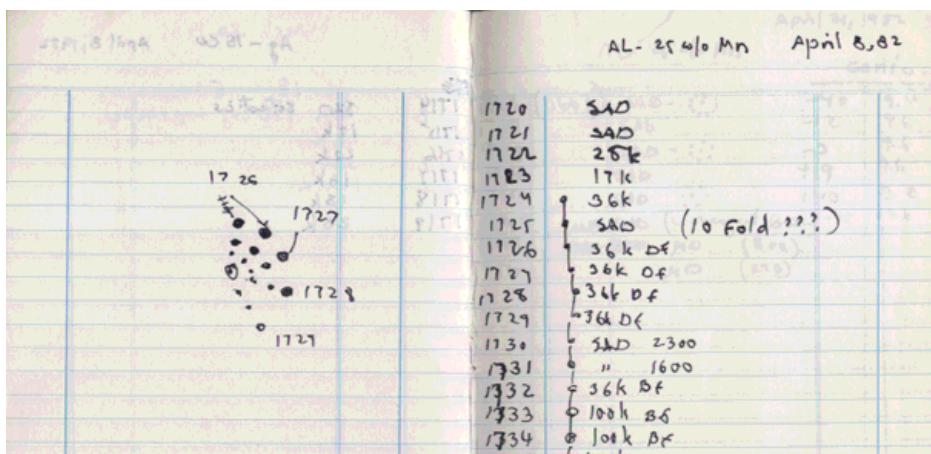 AL- 25 w/o Mn April 8, 82
1726
1727
1728
1729
1720 SAD
1721 SAD
1722 25k
1723 17k
1724 36k
1725 SAD (10 Fold ???)
1726 36k Df
1727 36k Df
1728 36k Df
1729 36k Df
1730 SAD 2300
1731 " 1600
1732 36k Bf
1733 100k Bf
1734 100k Bf